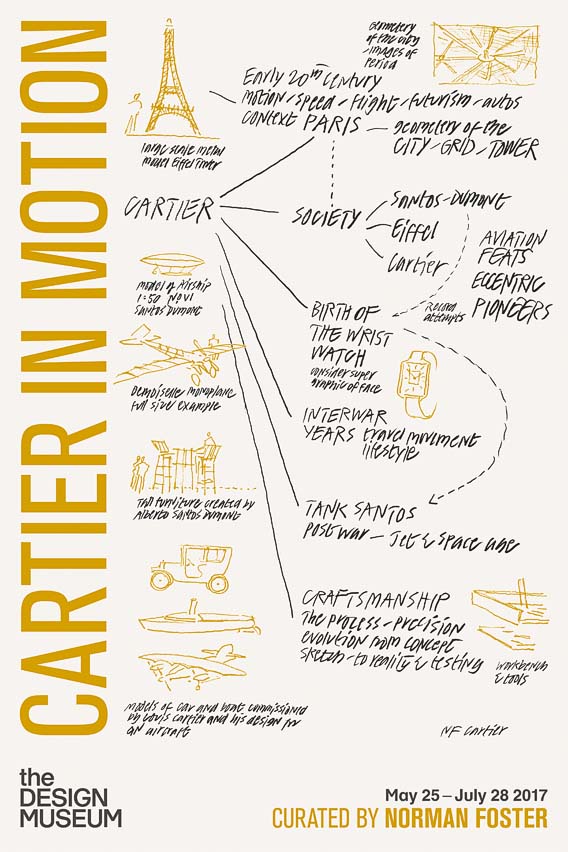 CARTIER IN MOTION
large scale metal
model Eiffel Tower
geometery
of the city
images of
period
Early 20th Century
motion / speed / flight / futurism / autos
context PARIS — geometery of the
CITY / GRID / TOWER
CARTIER
SOCIETY
Santos-Dumont
Eiffel
Cartier
AVIATION
FEATS
ECCENTRIC
PIONEERS
Record
attempts
model of Airship
1:50 No VI
Santos Dumont
BIRTH OF
THE WRIST
WATCH
consider super
graphic of face
Demoiselle monoplane
full size/ example
INTERWAR
YEARS travel movement
lifestyle
Tall furniture created by
Alberto Santos Dumont
TANK SANTOS
Post war — Jet & space age
CRAFTSMANSHIP
The process - precision
evolution from concept
sketch - to reality & testing
workbench
& tools
models of car and boat commissioned
by Louis Cartier and his design for
an aircraft
NF Cartier
the
DESIGN
MUSEUM
May 25 – July 28 2017
CURATED BY NORMAN FOSTER